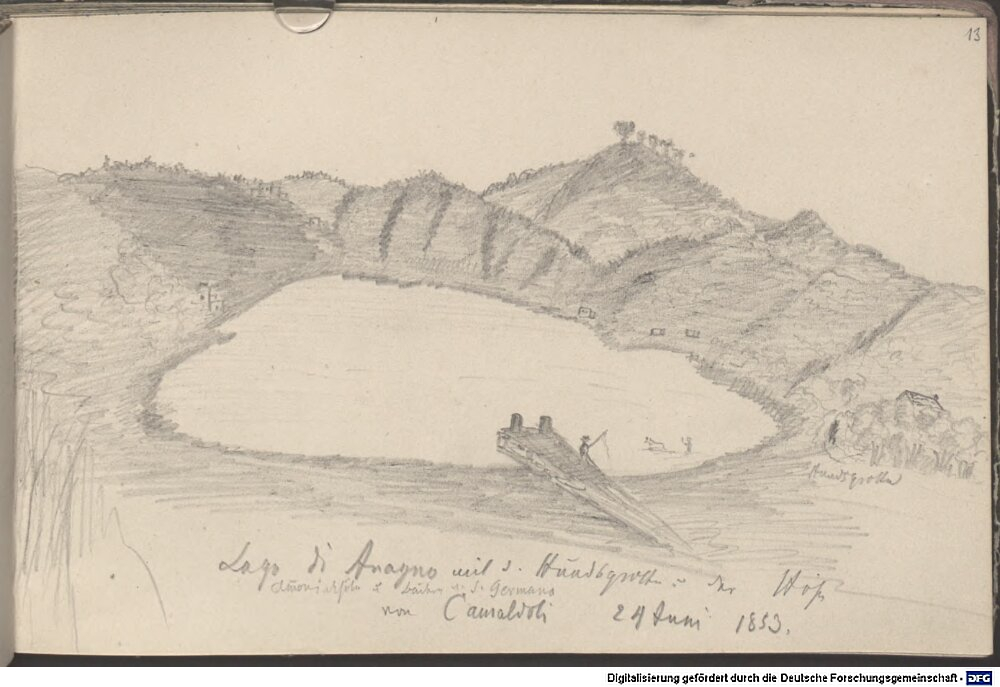 13
Hundsgrotte
Lago di Anagno mit d. Hundsgrotte u der Höhe
d. S. Germano
von Camaldoli 24 Juni 1853.
Digitalisierung gefördert durch die Deutsche Forschungsgemeinschaft - DFG